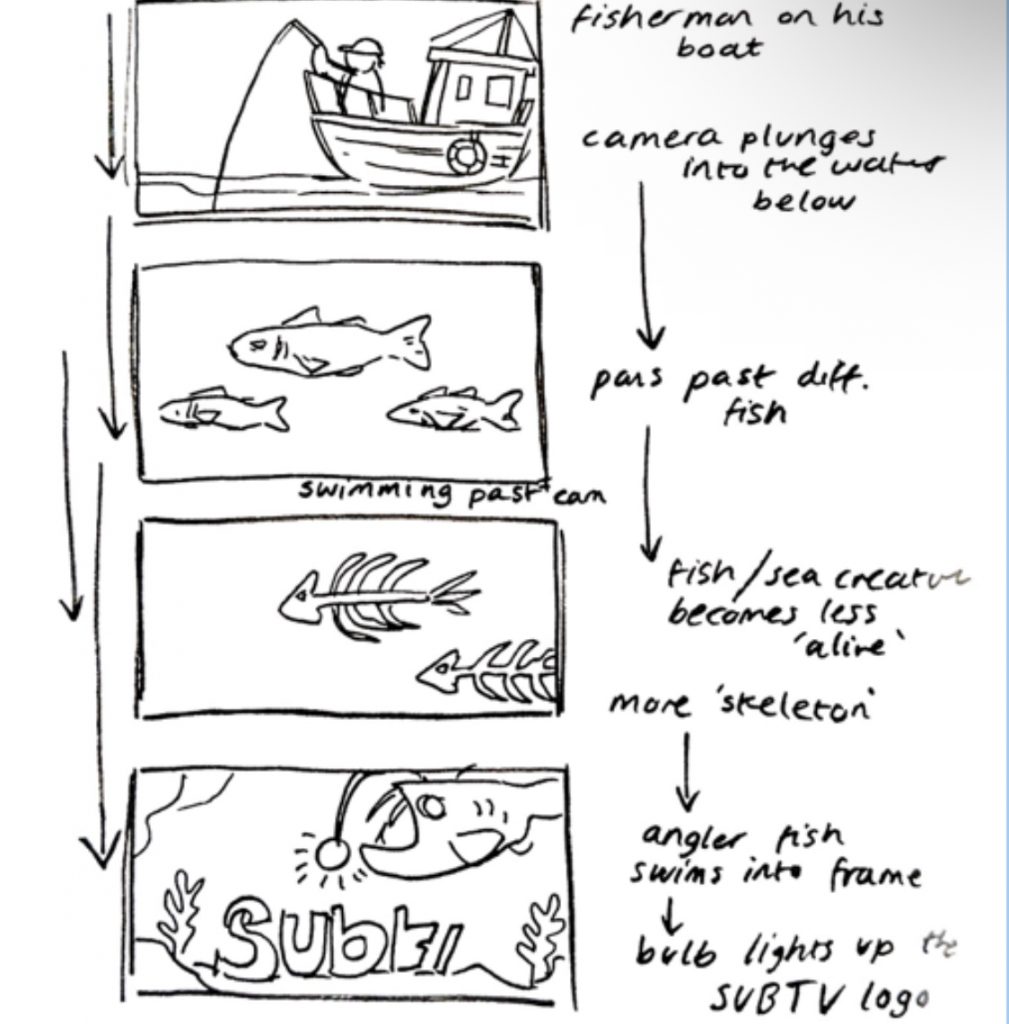 fisherman on his
boat
camera plunges
into the water
below
pans past diff.
fish
swimming past cam
fish/sea creature
becomes less
'alive'
more 'skeleton'
angler fish
swims into frame
bulb lights up the
SUBTV logo